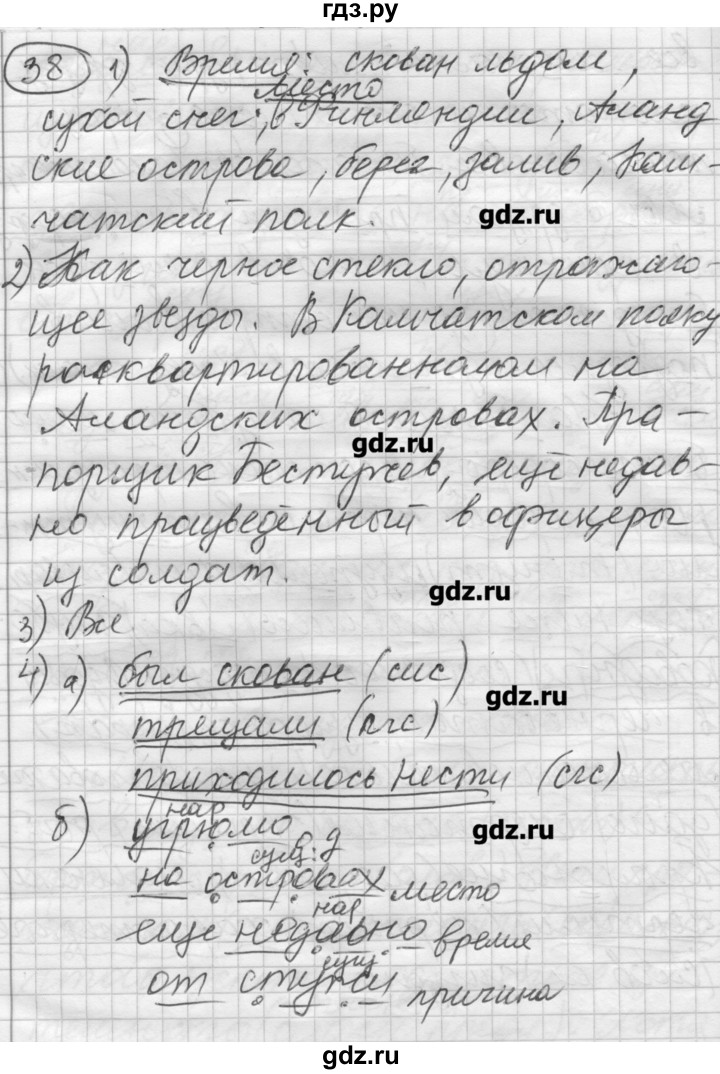 гдз.ру
38 1) Время: скован льдом,
место
сухой снег; в Финляндии, Аланд
ские острова, берег, залив, Кам-
чатский полк.
gdz.ru
2) Как черное стекло, отражаю-
щее звезды. В Камчатском полку
расквартированном на
Аландских островах. Пра-
gdz.ru
порщик Бестужев, ещё недав-
но працведённый в офицеры
из солдат.
gdz.ru
3) Все
4) а) был скован (сис)
gdz.ru
трещали (пгс)
приходилось нести (сгс)
нар
б) угрюмо о. д
gdz.ru
сущ.
на островах место
нар
еще недавно время
сущ.
от стужи причина
gdz.ru